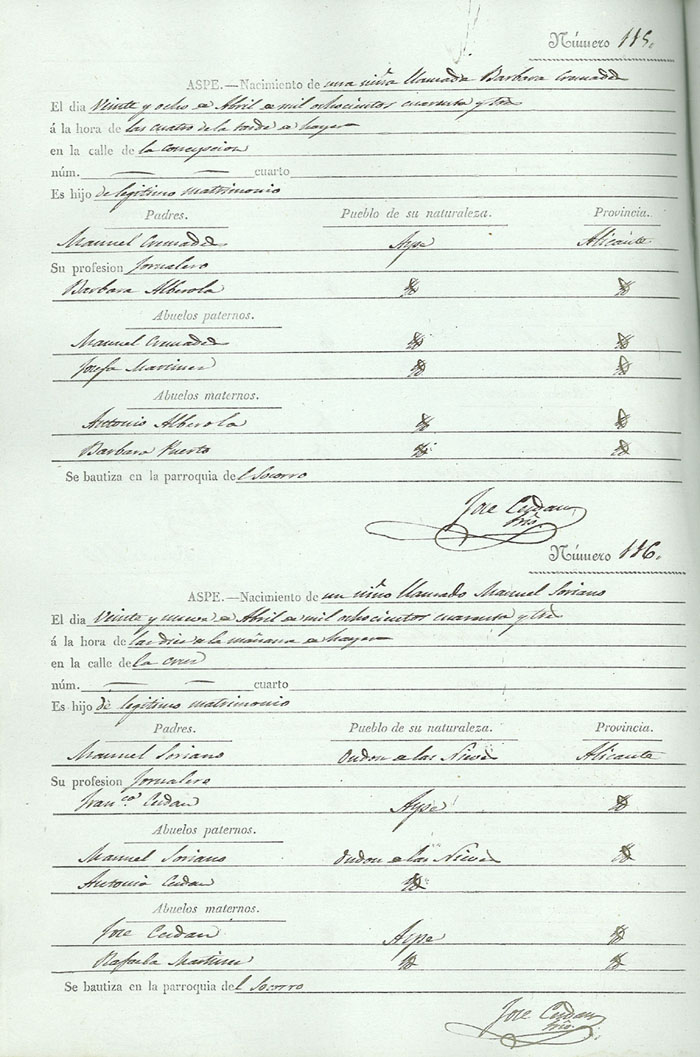 Número 115.
ASPE.—Nacimiento de una niña llamada Barbara Cremades
El dia Veinte y ocho de Abril de mil ochocientos cuarenta y tres
á la hora de las cuatro de la tarde de hayer
en la calle de la concepcion
núm. — — cuarto
Es hijo de legitimo matrimonio
Padres. Pueblo de su naturaleza. Provincia.
Manuel Cremades Aspe Alicante
Su profesion Jornalero
Barbara Alberola
Abuelos paternos.
Manuel Cremades
Josefa Martinez
Abuelos maternos.
Antonio Alberola
Barbara Puerto
Se bautiza en la parroquia del Socorro
Jose Cerdan
Número 116.
ASPE.—Nacimiento de un niño llamado Manuel Soriano
El dia Veinte y nueve de Abril de mil ochocientos cuarenta y tres
á la hora de las dies de la mañana de hayer
en la calle de la cruz
núm. — — cuarto
Es hijo de legitimo matrimonio
Padres. Pueblo de su naturaleza. Provincia.
Manuel Soriano Ondon de las Nieves Alicante
Su profesion Jornalero
Fran.ca Cerdan Aspe
Abuelos paternos.
Manuel Soriano Ondon de las Nieves
Antonia Cerdan
Abuelos maternos.
Jose Cerdan Aspe
Rafaela Martinez
Se bautiza en la parroquia del Socorro
Jose Cerdan